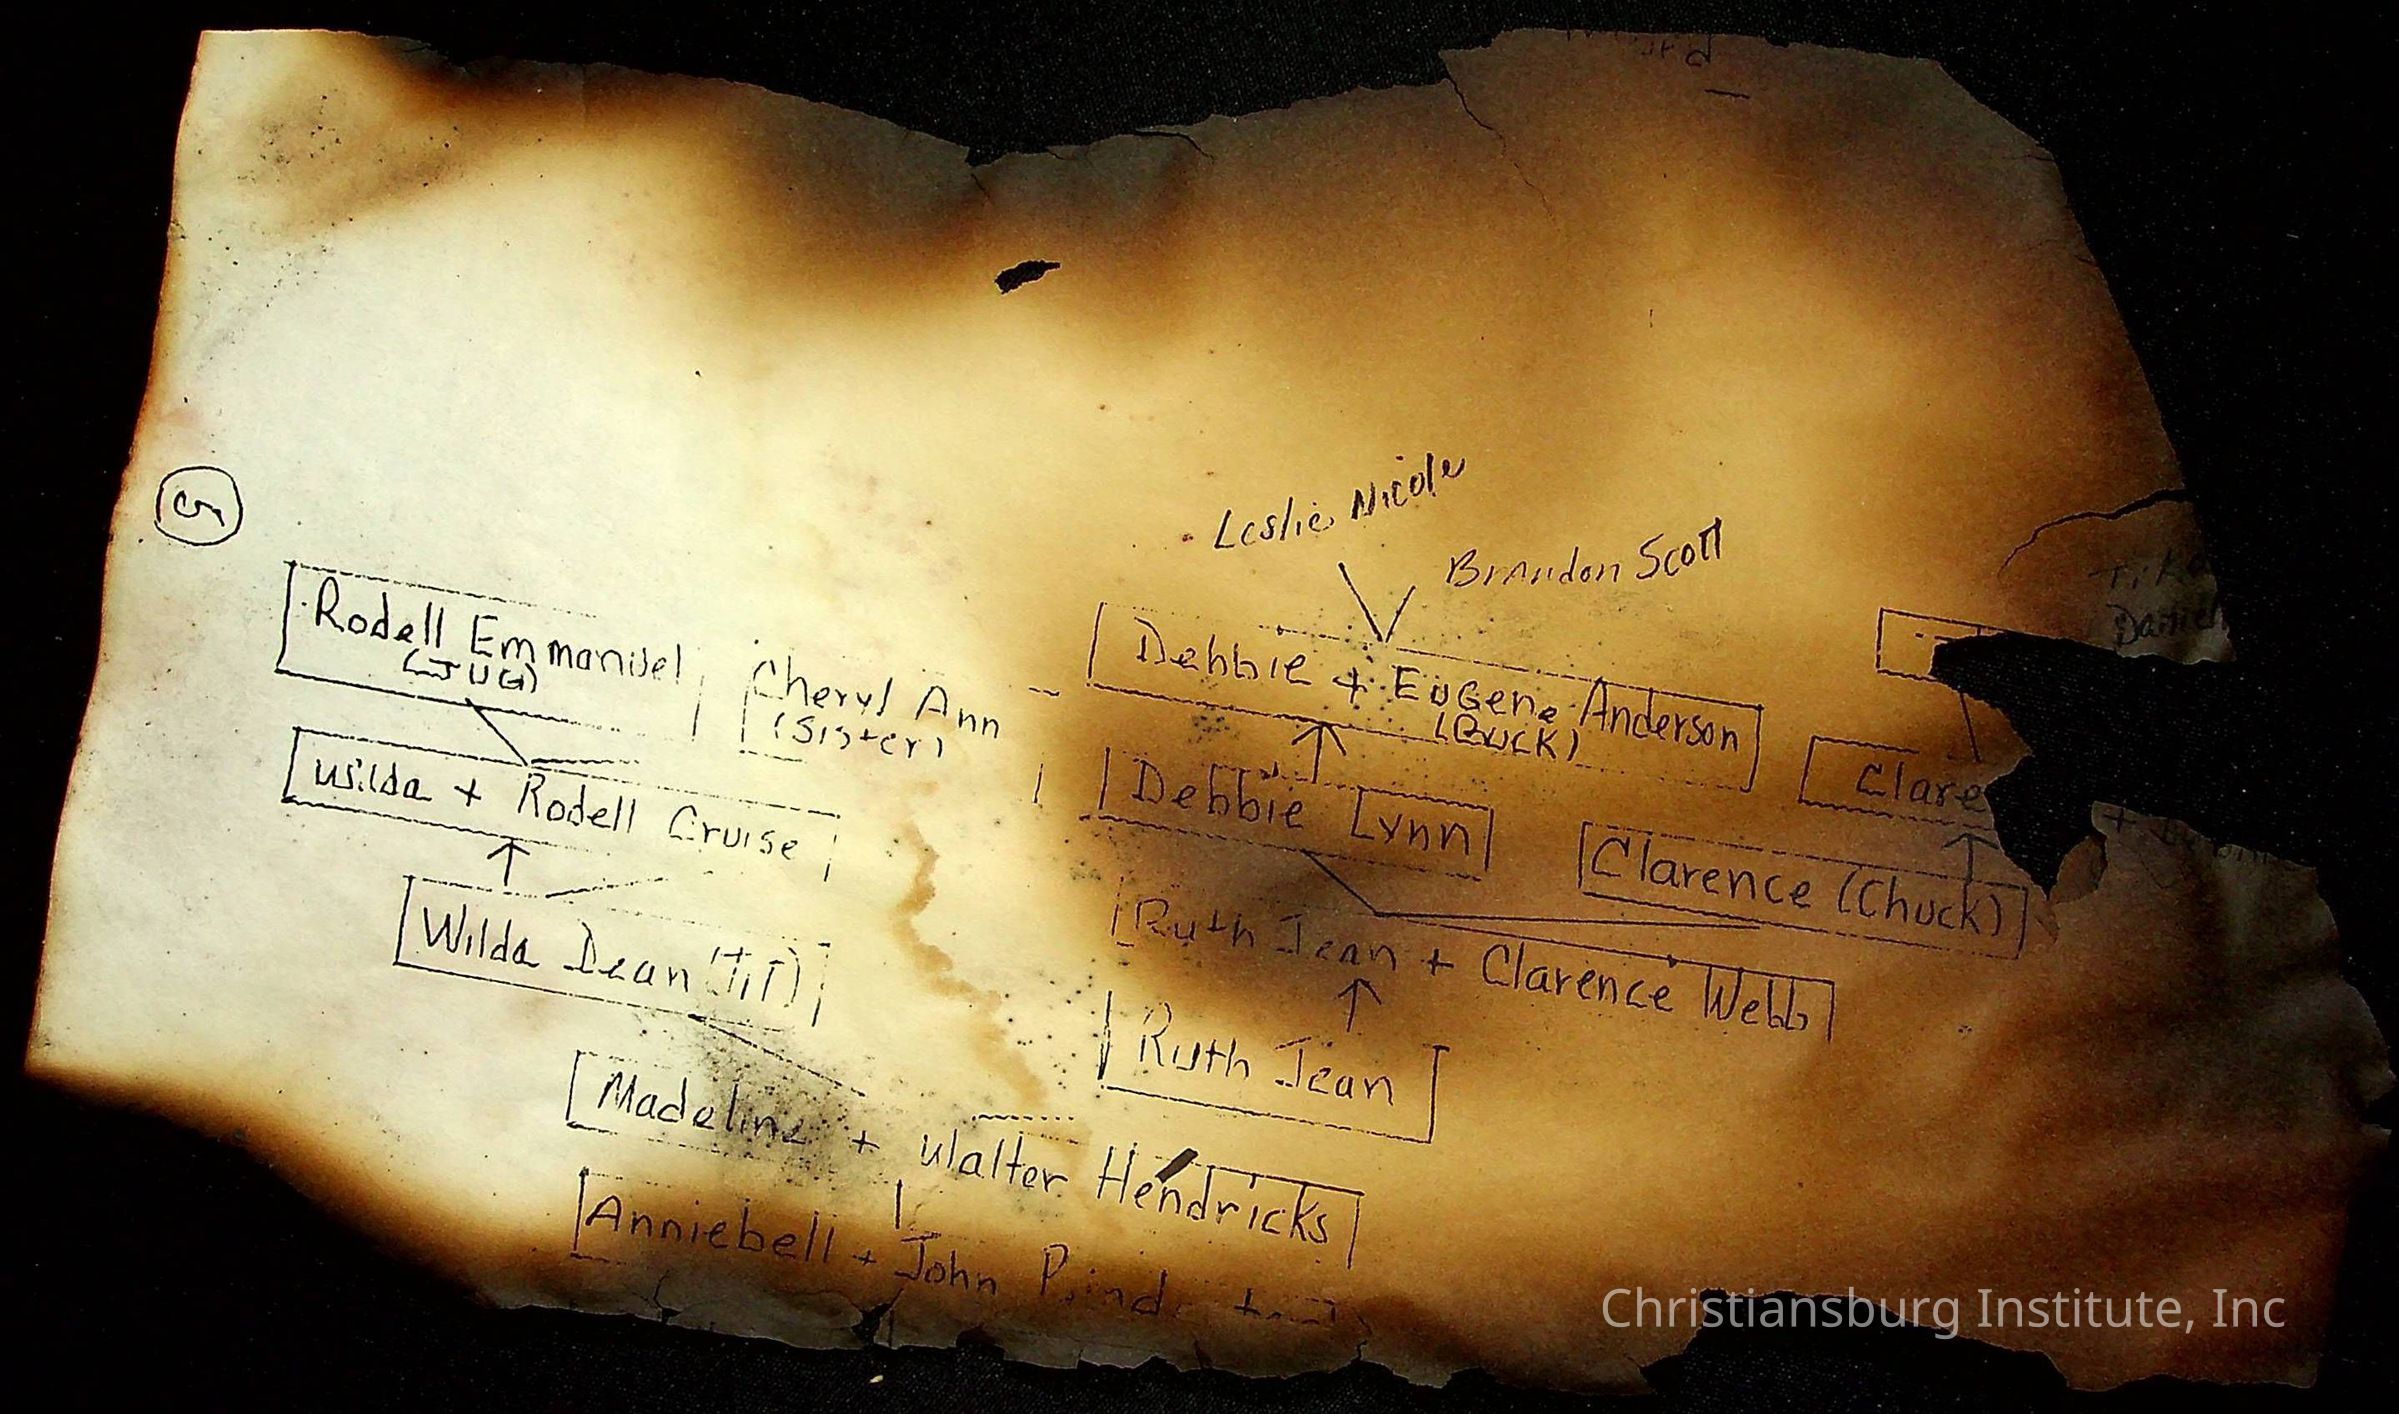 5
Leslie Nicole
Brandon Scott
Rodell Emmanuel
(JUG)
Cheryl Ann
(Sister)
Debbie + Eugene Anderson
(Buck)
Wilda + Rodell Cruise
Debbie Lynn
Clare
Clarence (Chuck)
Wilda Dean (TiT)
Ruth Jean + Clarence Webb
Ruth Jean
Madeline + Walter Hendricks
Anniebell + John
Christiansburg Institute, Inc